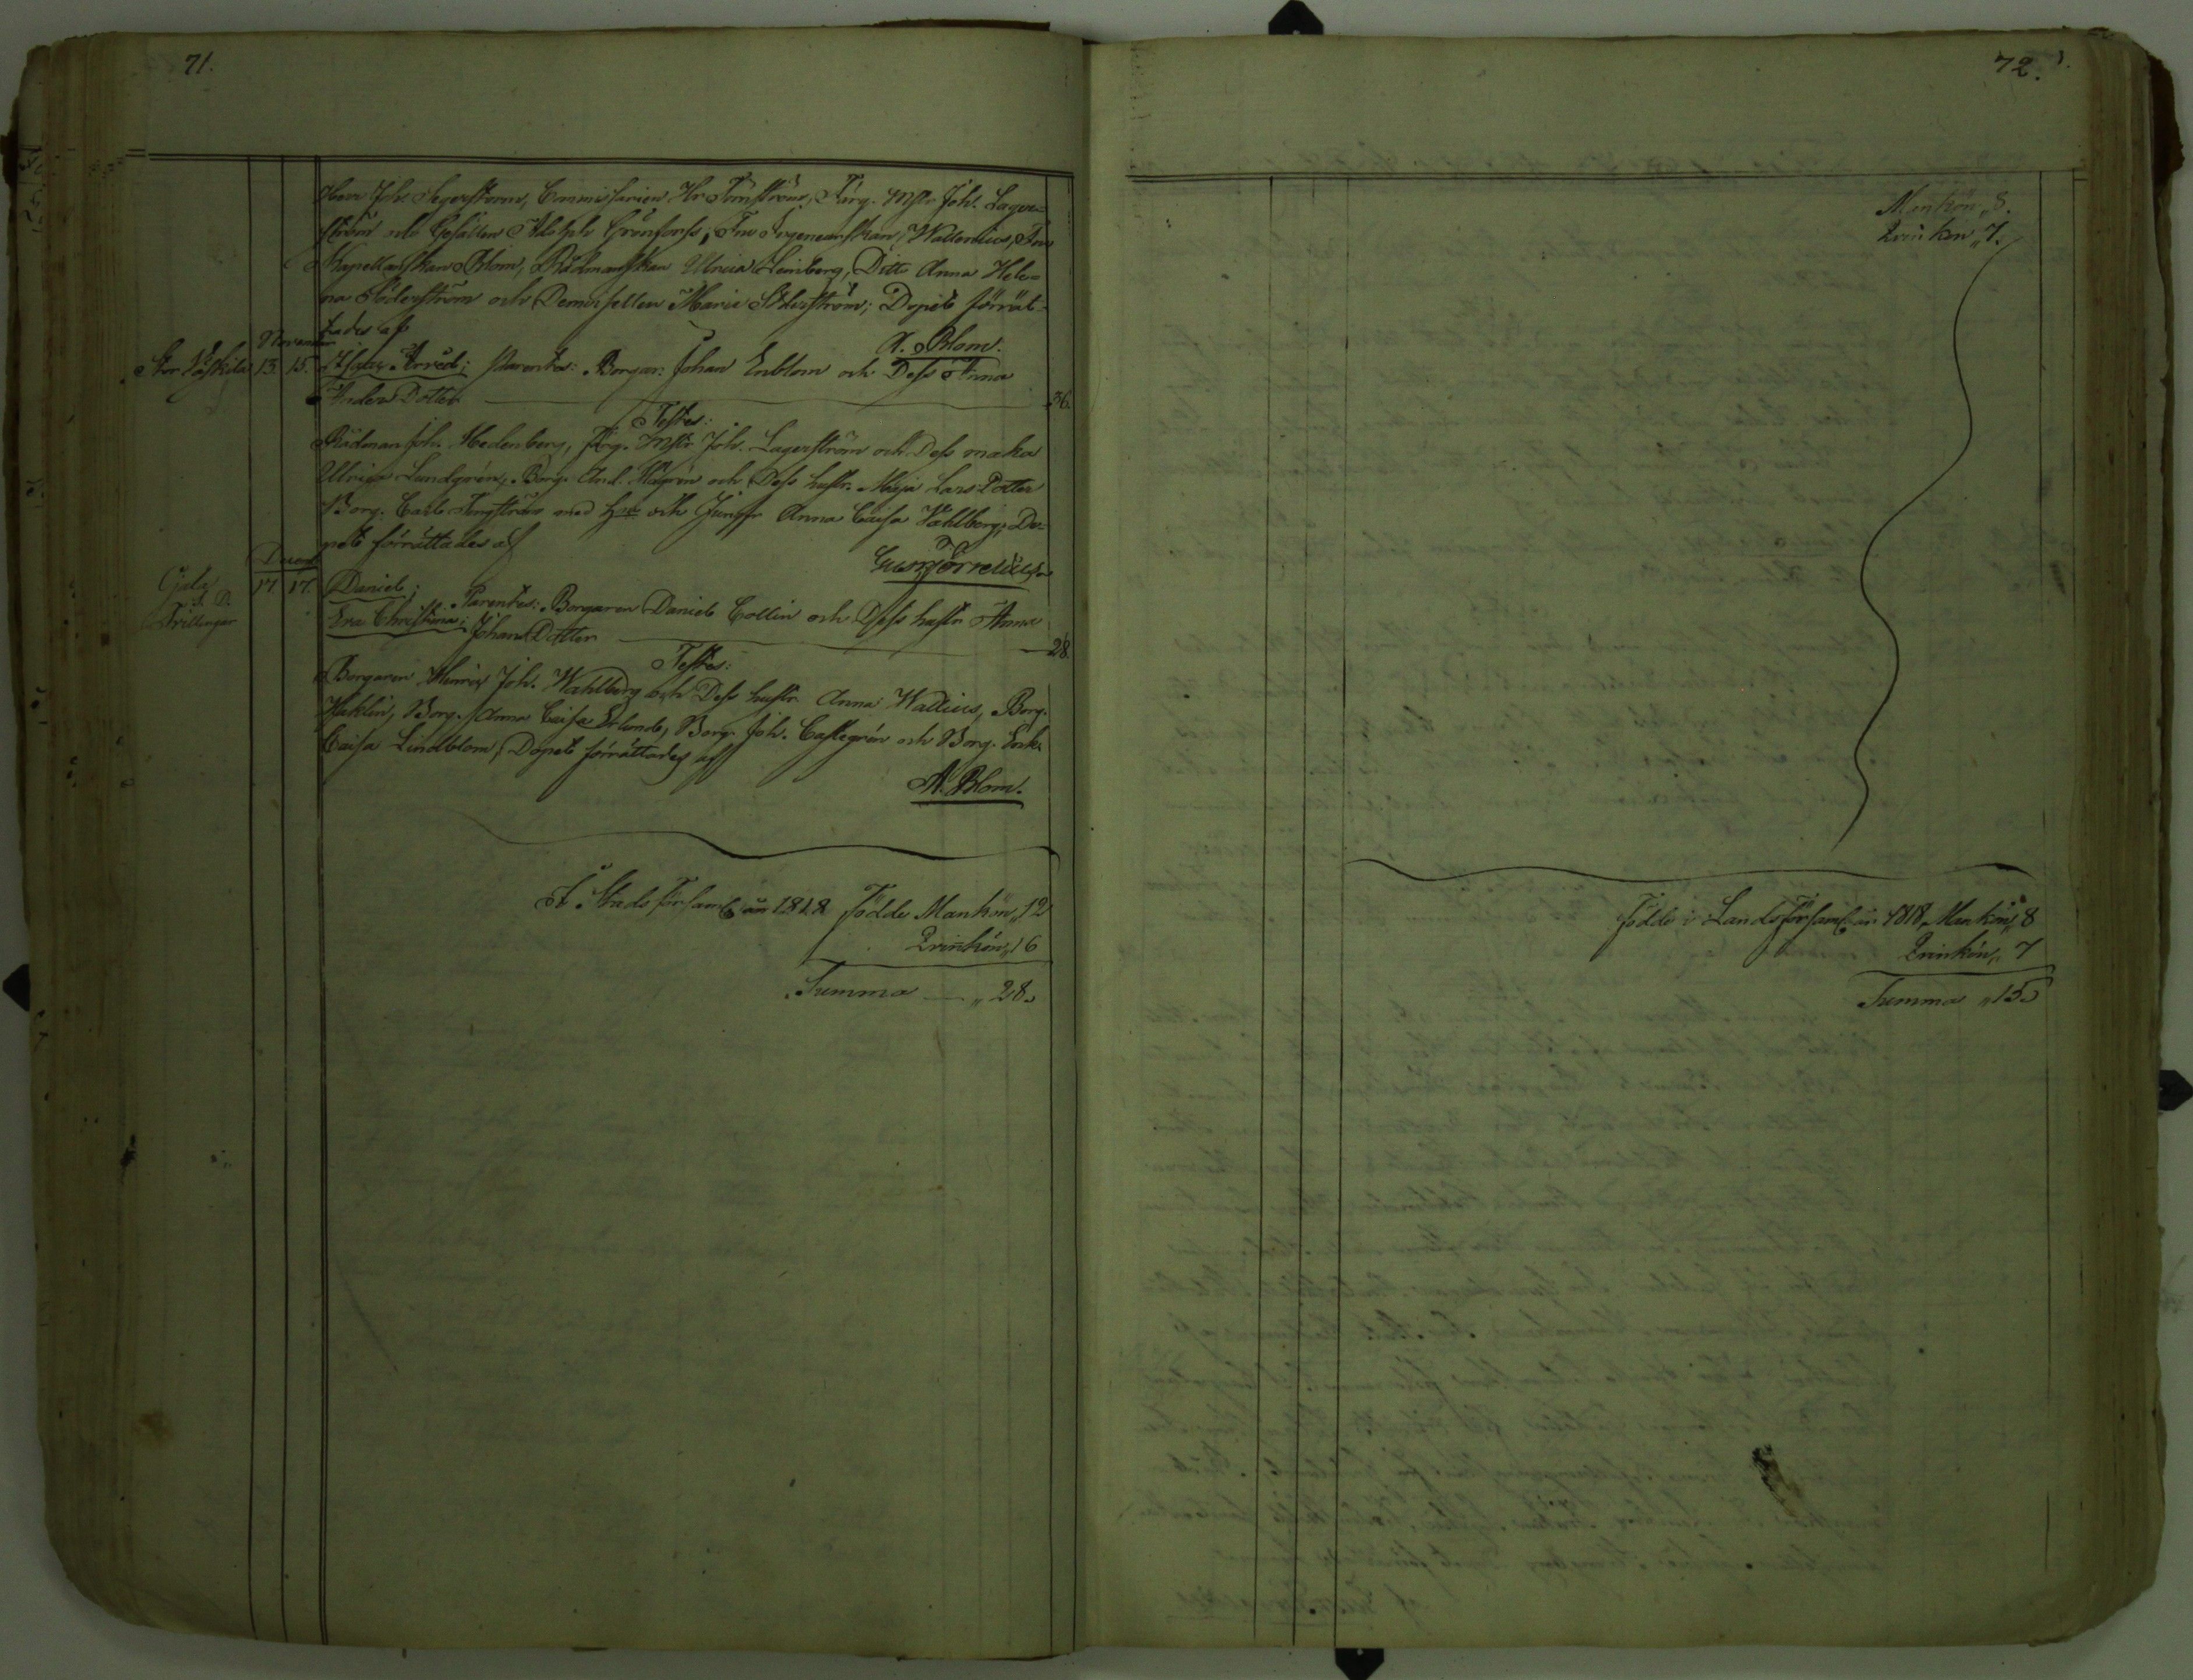 71.
Herr Joh. Segerstrom, Commissarien Hr Törnström, Färg. Mstr Joh. Lager=
ström och Gesällen Adolph Grönforss; Fru Ingeneurskan Wallenius, Fru
Kapellanskan Blom, Rådmanskan Ulrica Lemberg, Ditto Anna Hele=
na Söderström och Demoisellen Maria Söderström; Dopet förrät-
tades af
A. Blom.
November
13. 15. Isaac Arvid; Parentes: Borgar: Johan Enblom och Dess Anna
Anders Dotter 36.
Testes:
Rådman Joh. Hedenberg, Färg. Mstr Joh. Lagerström och Dess maka
Ulrica Lundgrén, Borg. And. Hägrén och Dess hustr. Maja Lars Dotter
Borg. Carl Tengström med hu och Jungfr Anna Caisa Wahlberg; Do=
pet förrättades af
Gust.
Decemb
Gala
S. D.
Trillingar
17. 17. Daniel;
Eva Christina; Parentes: Borgaren Daniel Collin och Dess hustr. Anna
Johans Dotter 28.
Testes:
Borgaren Henric Joh. Wahlberg och Dess hustr. Anna Wallius, Borg.
Häklin, Borg. Anna Caisa Erlund, Borg. Joh. Castegrén och Borg. Enk.
Caisa Lindblom; Dopet förrättades af
A. Blom.
I Stads församl. år 1818 födde Mankön „ 12
Qvinkön „ 16
Summa — „ 28.
72.
Mankön „ 8.
Qvinkön „ 7.
födde i Lands församl. år 1818 „ Mankön „ 8
Qvinkön „ 7
Summa „ 15.